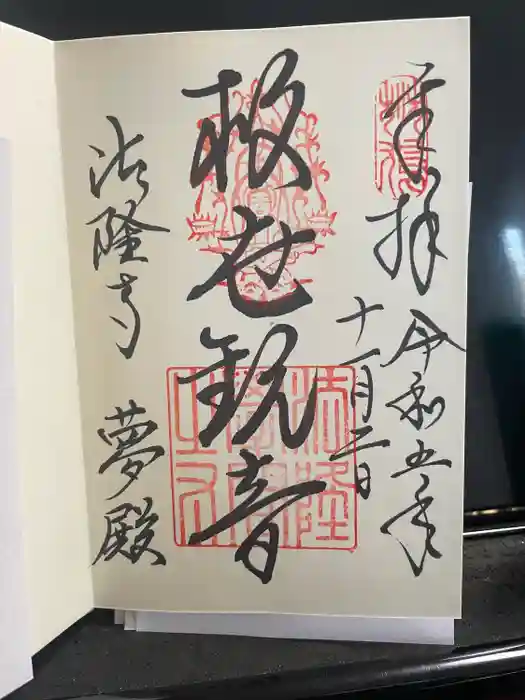 奉拝
令和五年
十一月二日
救世観音
法隆寺 夢殿